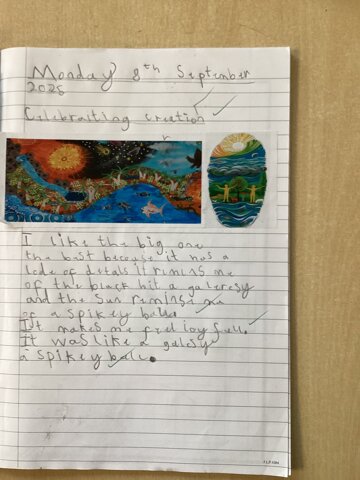 Monday 8th September
2025
Celebraiting creation
I like the big one
the best because it has a
lode of detals it remins me
of the black hit a galexesy
and the Sun remines me
of a spikey ball.
It makes me feel joy full.
It was like a galexsy
a spikey ball.